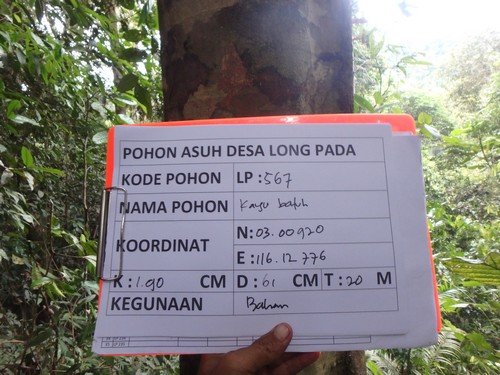 POHON ASUH DESA LONG PADA
KODE POHON LP : 567
NAMA POHON Kayu batuh
KOORDINAT N: 03.00920
E : 116.12776
K : 1.90 CM D : 61 CM T : 20 M
KEGUNAAN Bahan